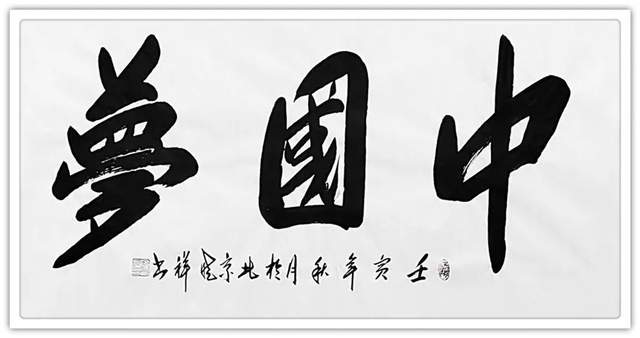 中國夢
壬寅年秋月於北京曉祥书